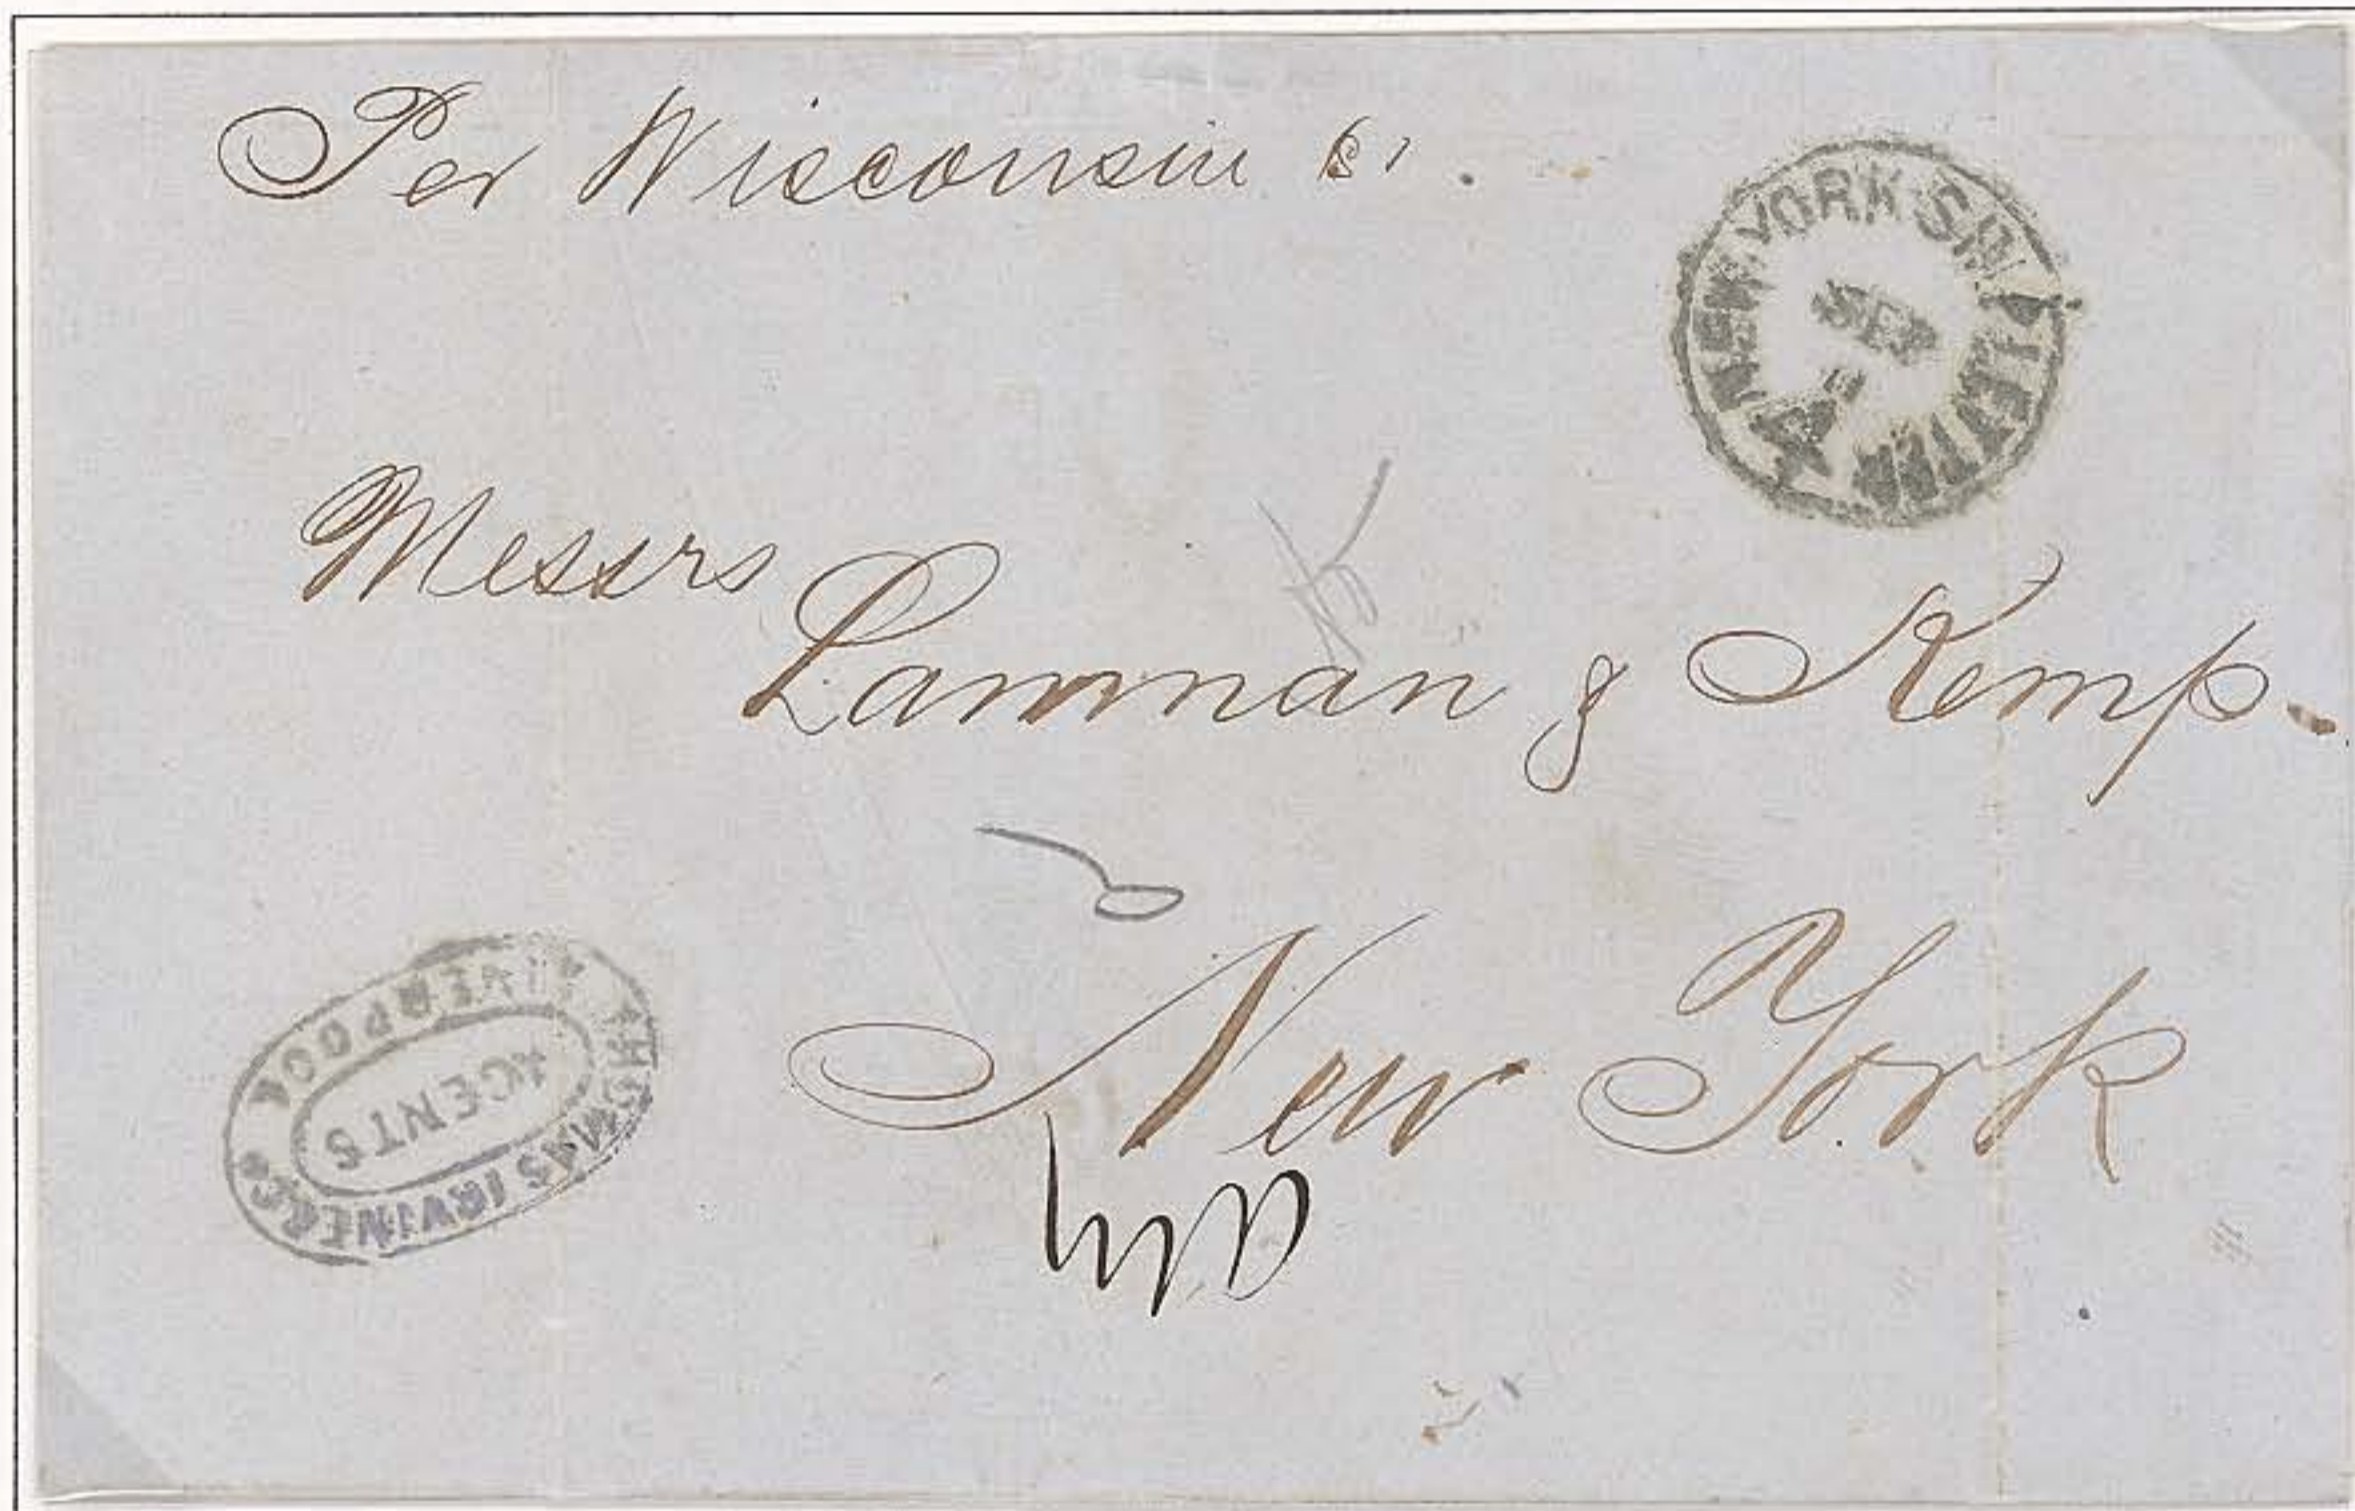 Per Wisconsin
NEW YORK SHIP LETTER
SEP
Messrs
Lanman & Kemp.
New York
THOMAS IRVINE & Co
LIVERPOOL
AGENTS